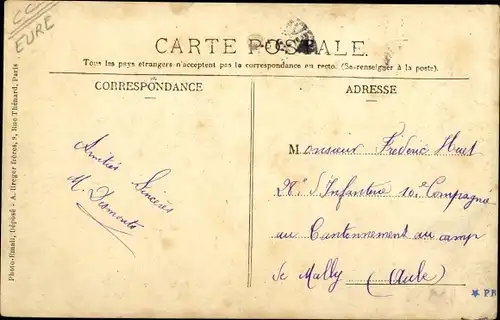 CC
EURE
CARTE POSTALE
Tous les pays étrangers n'acceptent pas la correspondance au recto. (Se renseigner à la poste).
CORRESPONDANCE
ADRESSE
Amitiés Sincères
M. Desmonts
Monsieur Frédéric Huet
d'Infanterie 10.e Compagnie
au Cantonnement au camp
de Mailly (Aube)
Photo-Email, Déposé - A. Breger frères, 9, Rue Thénard, Paris
* PR